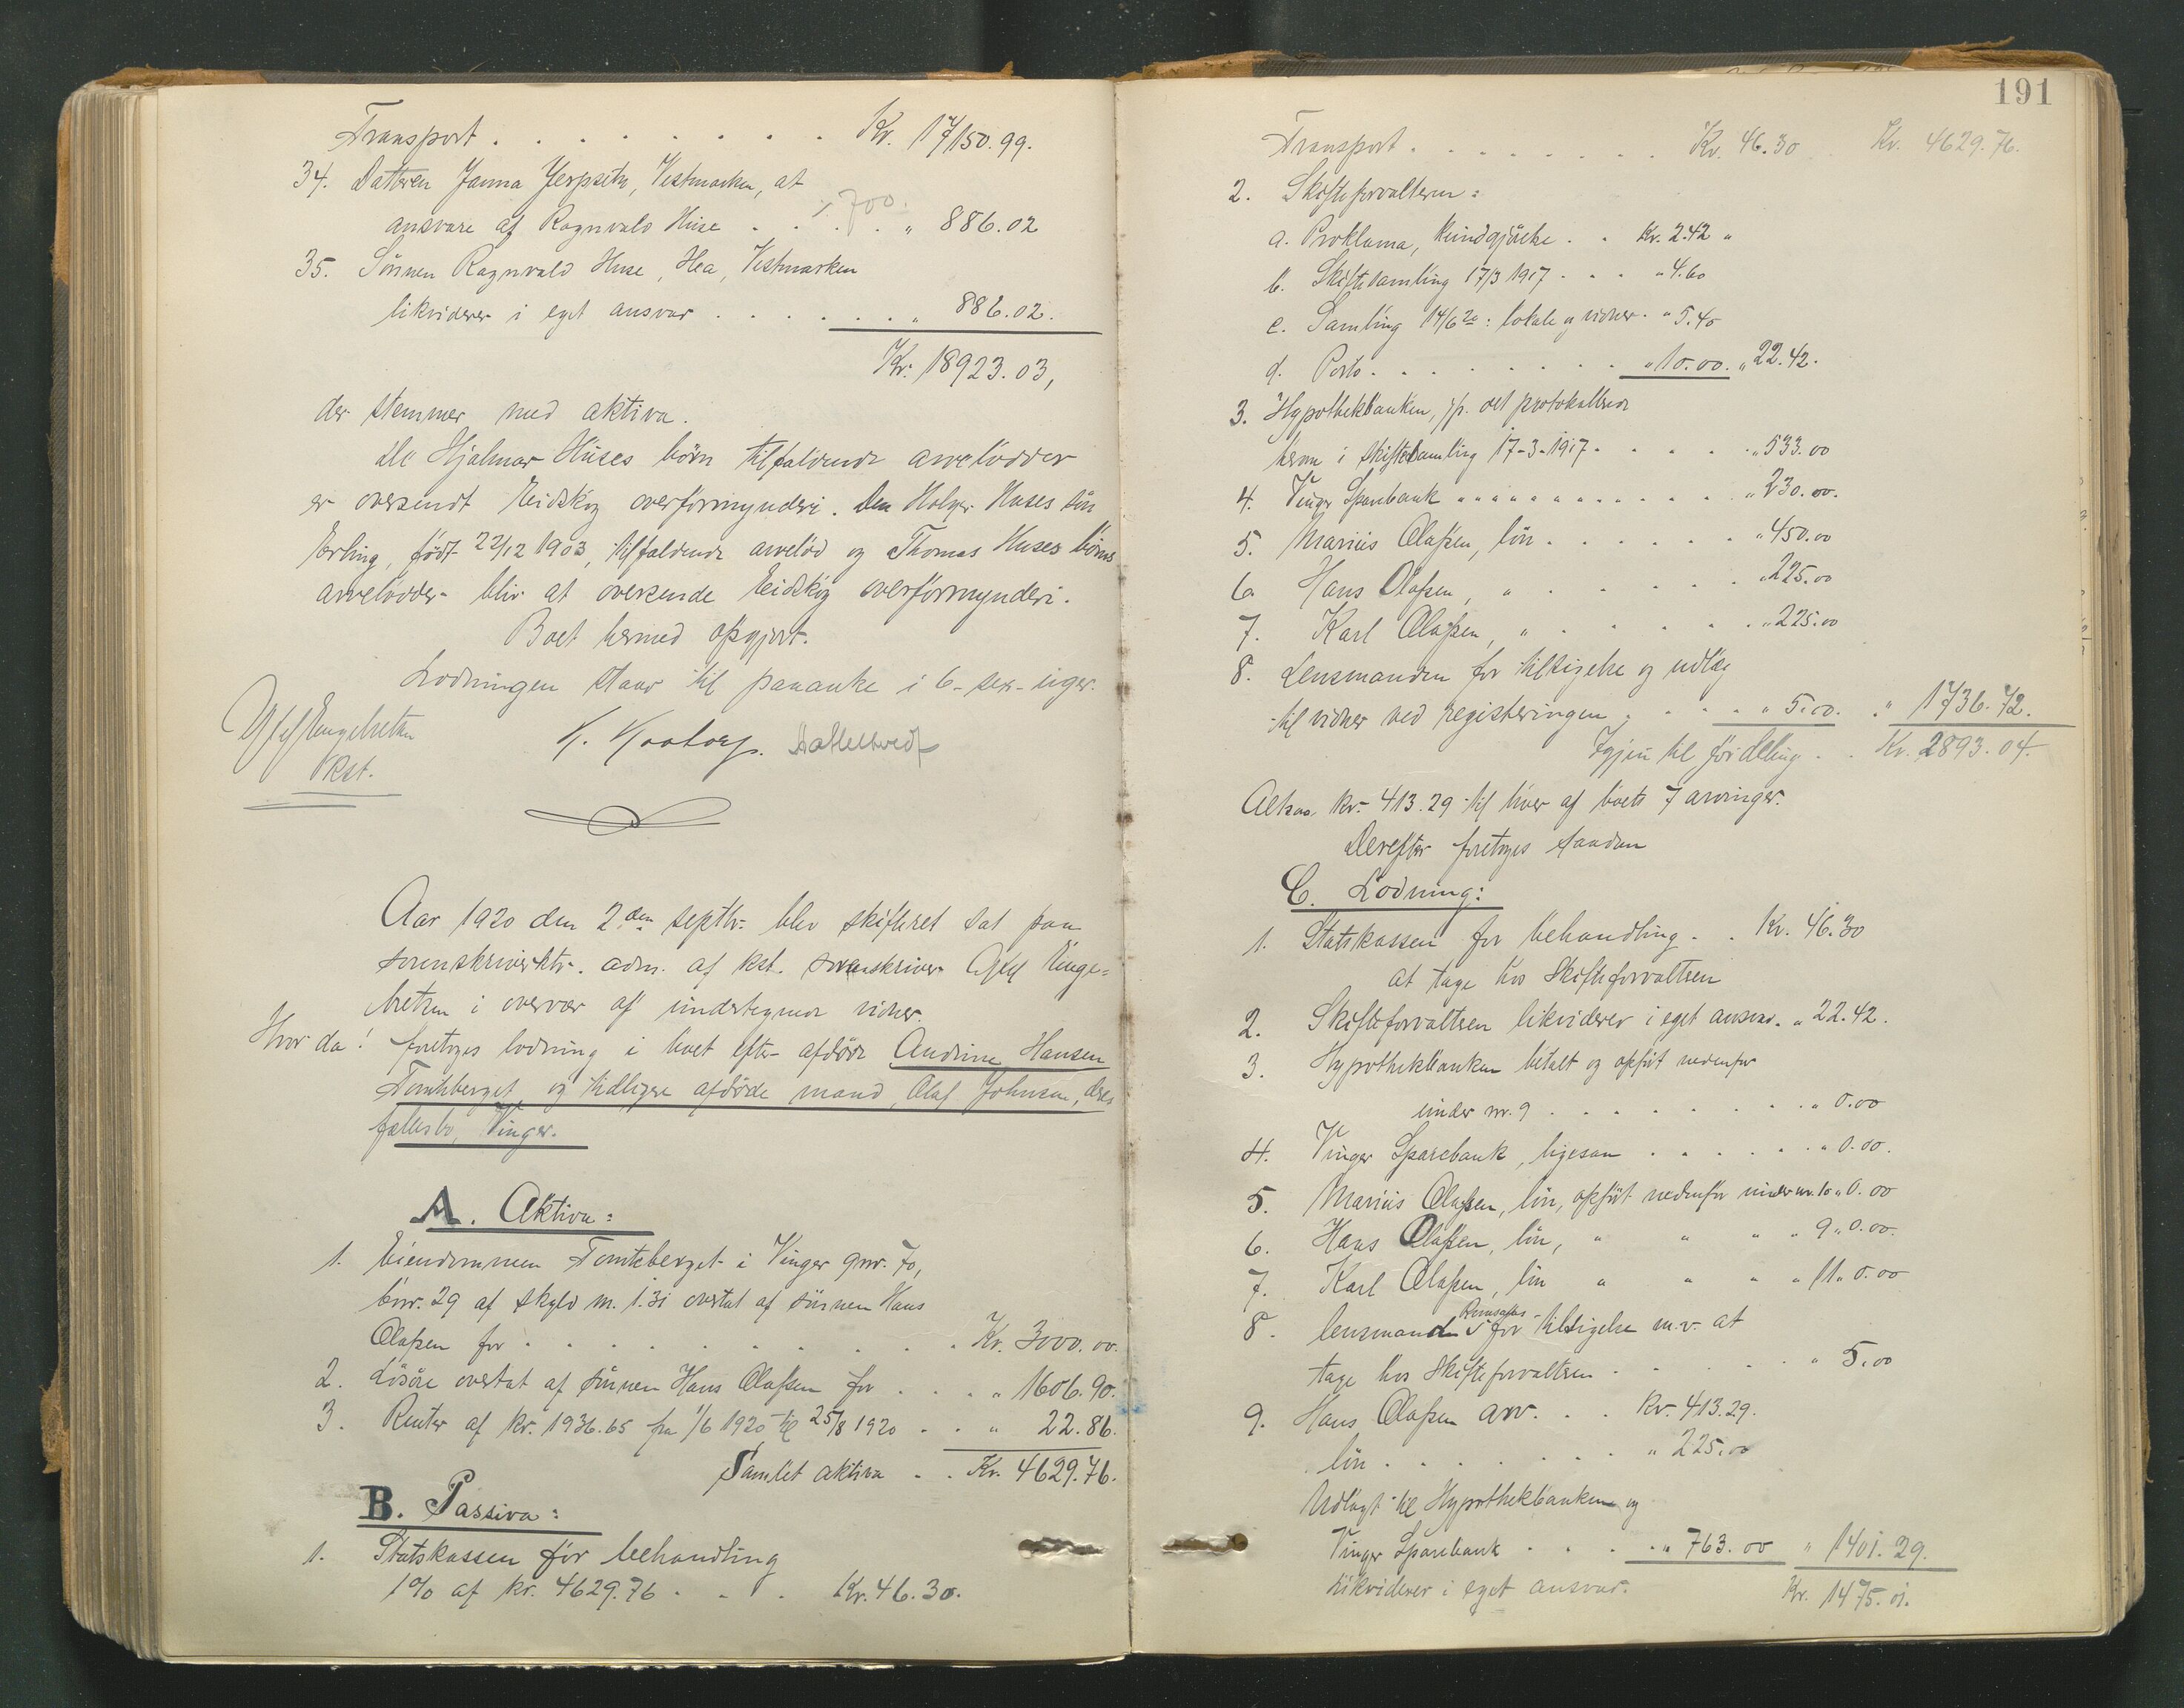 Transport . . . . . . . . . Kr. 17150.99.
34. Datteren Janna Jerpseth, Vestmarken, at
÷ 700.
ansvare af Ragnvald Huse . . . . „ 886.02
35. Sönnen Ragnvald Huse, Hea, Vestmarken
likviderer i eget ansvar . . . . . . „ 886.02.
Kr. 18923.03,
der stemmer med aktiva.
De Hjalmar Huses börn tilfaldende arvelodder
er oversendt Eidskog overformynderi. Den Holger Huses sön
Erling, födt 22/12 1903, tilfaldende arvelod og Thomas Huses börns
arvelodder blir at oversende Eidskog overformynderi.
Boet hermed opgjort.
Lodningen staar til paaanke i 6 - sex - uger.
Engebretsen
kst.
Aar 1920 den 2den septbr. blev skifteret sat paa
sorenskriverktr. adm. af kst. sorenskriver Enge=
bretsen i overvær af undertegnede vidner.
Hvor da! foretoges lodning i boet efter afdöde Andrine Hansen
Tomteberget og tidligere afdöde mand, Olaf Johnsen, deres
fællesbo, Vinger.
A. Aktiva:
1. Eiendommen Tomteberget i Vinger gnr. 70,
bnr. 29 af skyld m. 1.31 overtat af sönnen Hans
Olafsen for . . . . . . . . . . Kr. 3000.00.
2. Lösöre overtat af sönnen Hans Olafsen for . . . . „ 1606.90.
3. Renter af kr. 1936.65 fra 1/6 1920 til 25/8 1920 . . „ 22.86.
Samlet aktiva . . Kr. 4629.76.
B. Passiva:
1. Statskassen for behandling
1% af kr. 4629.76 . . . Kr. 46.30.
191
Transport . . . . . . . . Kr. 46.30 Kr. 4629.76.
2. Skifteforvalteren:
a. Proklama, kundgjörelse . . Kr. 2.42 „
b. Skiftesamling 17/3 1917 . . . „ 4.60
c. Samling 14/6 20: lokale og vidner . „ 5.40
d. Porto . . . . . . . . „ 10.00. „ 22.42.
3. Hypothekbanken, jfr. det protokollerede
herom i skiftesamling 17-3-1917 . . . . . „ 533.00
4. Vinger Sparebank . . . . . . . . . . . „ 230.00.
5. Marius Olafsen, lön . . . . . . . „ 450.00
6. Hans Olafsen, „ . . . . . . „ 225.00
7. Karl Olafsen, „ . . . . . . „ 225.00
8. Lensmanden for tilsigelse og udlæg
til vidner ved registeringen . . . . „ 5.00. . „ 1736.72.
Igjen til fordeling . . Kr. 2893.04.
Altsaa kr. 413.29 til hver af boets 7 arvinger.
Derefter foretoges saadan
C. Lodning:
1. Statskassen for behandling . . Kr. 46.30
at tage hos Skifteforvalteren
2. Skifteforvalteren likviderer i eget ansvar . „ 22.42.
3. Hypothekbanken betalt og opfört nedenfor
under nr. 9 . . . . . . . . . „ 0.00
4. Vinger Sparebank, ligesaa . . . . . . „ 0.00.
5. Marius Olafsen, lön, opfört nedenfor under nr. 10 „ 0.00
6. Hans Olafsen, lön, „ „ „ „ 9 „ 0.00.
7. Karl Olafsen, lön „ „ „ „ 11 „ 0.00
8. lensmand for tilsigelse m.v. at
tage hos Skifteforvalteren . . . . . . „ 5.00
9. Hans Olafsen arv . . . Kr. 413.29.
lön . . . . . . . „ 225.00
Udlagt til Hypothekbanken og
Vinger Sparebank . . . . „ 763.00 „ 1401.29.
likviderer i eget ansvar. Kr. 1475.01.